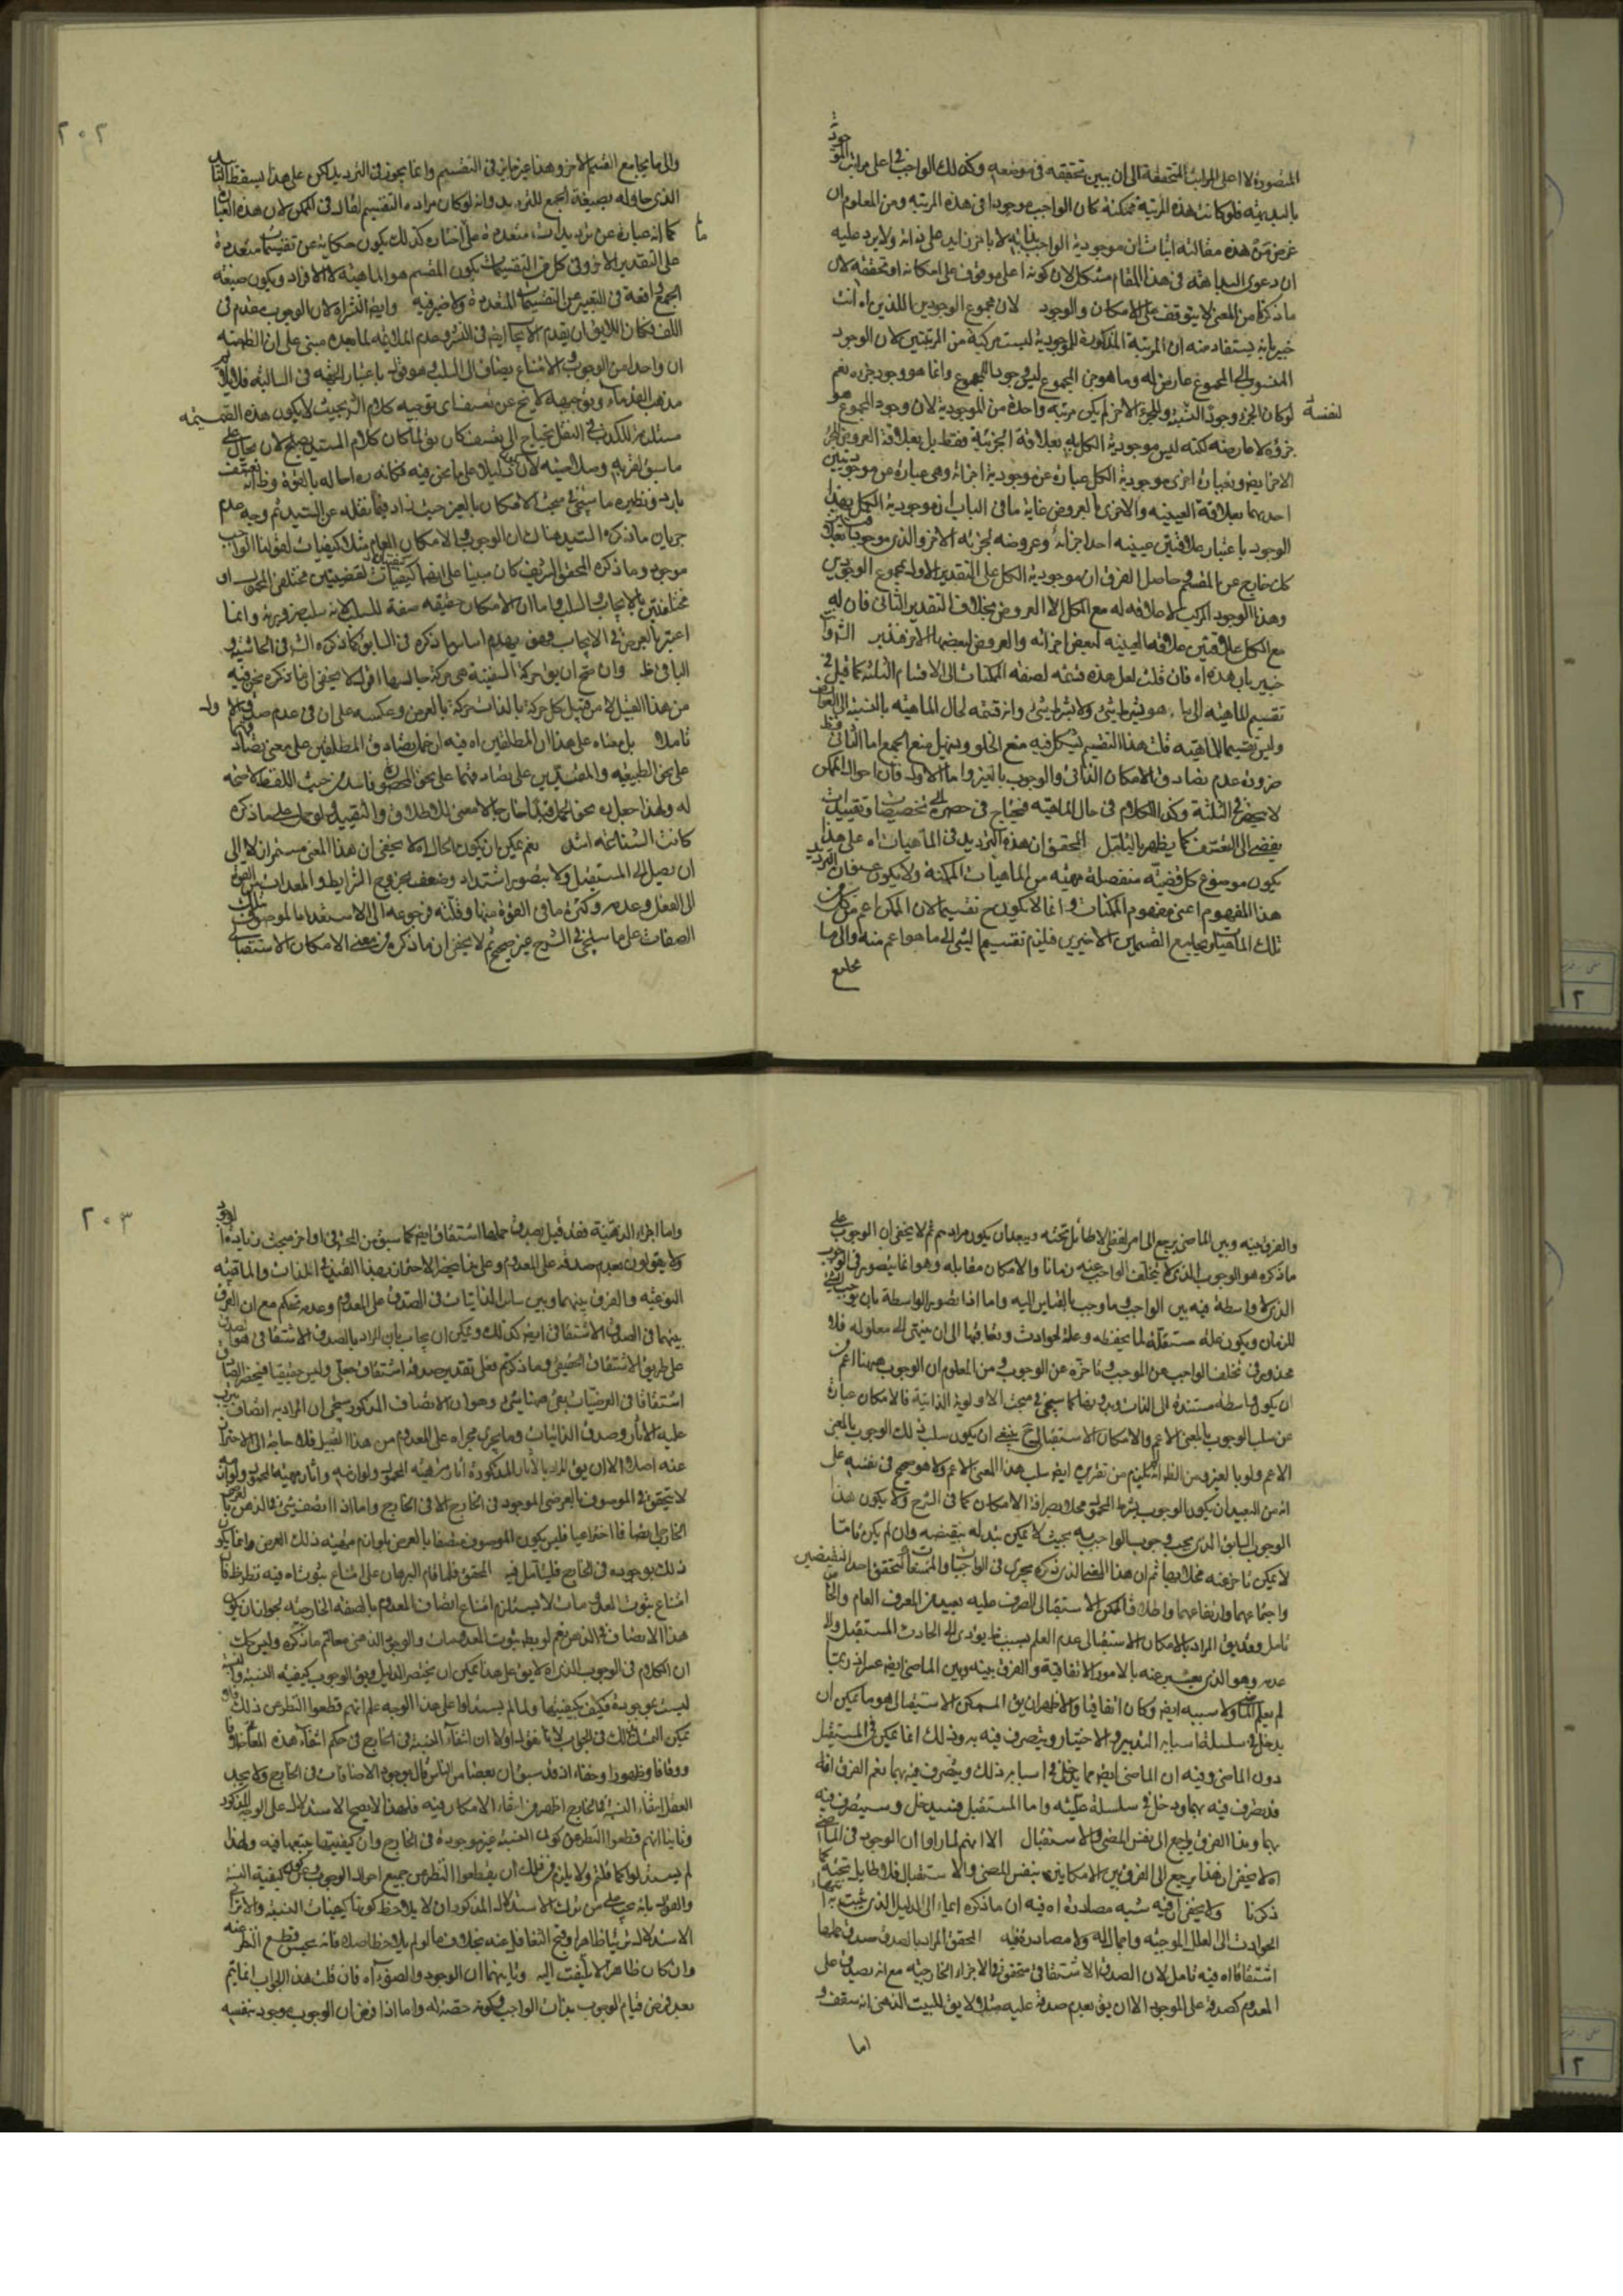 المتصورة لا اعلى المراتب المتحققة الى ان يبين تحققه فى موضعه وكذلك الواجب فى اعلى مراتب الموجودية
بالبديهة فلو كانت هذه المرتبة ممكنة كان الواجب موجودا فى هذه المرتبة ومن المعلوم ان
غرض من هذه مقالته اثبات ان موجودية الواجب بذاته لا بامر زايد على ذاته ولا يرد عليه
ان دعوى البداهة فى هذا المقام مشكل لان كونه اعلى موقوف على امكانه او تحققه لان
ما ذكرنا من المعنى لا يتوقف على الامكان والوجود لان مجموع الوجودين اللذين اه انت
خبير بانه يستفاد منه ان المرتبة المذكورة للموجودية ليست مركبة من المرتبتين لان الوجود
المنسوب الى المجموع عارض له وما هو من المجموع ليس وجود المجموع وانما هو وجود جزءه نعم
لو كان الجزء وجود النسبة والجزء الاخر لم يكن مرتبة واحدة من الموجودية لان وجود المجموع هو لنفسه
جزؤه لا عارضه لكنه ليس موجودية الكل به بعلاقة الجزئية فقط بل بعلاقة العروض للجزء
الاخر ايضا وبعبارة اخرى موجودية الكل عبارة عن موجودية اجزائه وهى عبارة عن موجوديتين
احديهما بعلاقة العينية والاخرى بالعروض غاية ما فى الباب ان موجودية الكل بهذا
الوجود باعتبار علاقتين عينيه احد اجزائه وعروضه لجزئه الاخر والذى موجود بعلاقتين
كل خارج عن المقسم حاصل الفرق ان موجودية الكل على التقدير الاول بمجموع الوجودين
وهذا الوجود المركب لا علاقة له مع الكل الا العروض بخلاف التقدير الثانى فان له
مع الكل علاقتين علاقة العينية لبعض اجزائه والعروض لبعضها الاخر فتدبر
خبير بان هذه اه فان قلت لعل هذه قسمة لصفة الممكنات الى الاقسام الثلثة كما قيل فى
تقسيم الماهية الى ما هو بشرط شئ ولا بشرط شئ وانه قسمة لحال الماهية بالنسبة الى العوارض
وليس تقسيما للماهية قلت هذا التقسيم يشكل فيه منع الخلو وبمثل منع الجمع اما الثانى فظ
ضرورة عدم تصادق الامكان الذاتى والوجوب بالغير واما الاول فان احوال الممكن
لا ينحصر فى الثلثة وكذا الكلام فى حال الماهية فيحتاج فى حصره الى تخصيصات وتقييدات
يفضى الى التعسف كما يظهر بالتأمل المحقق ان هذه الترديد فى الماهيات اه على هذا
يكون موضوع كل قضية منفصلة مهية من الماهيات الممكنة ولا يكون عنوان الترديد
هذا المفهوم اعنى مفهوم الممكنات وانما لا يكون ح تقسيما لان الممكن اعم من كل من
تلك الماهيات ويجامع القسمين الاخيرين فيلزم تقسيم الشئ الى ما هو اعم منه والى ما
يجامع
٢٠٢
والى ما يجامع القسيم الاخر وهذا غير جايز فى التقسيم وانما يجوز فى الترديد لكن على هذا يسقط التأييد
الذى حاوله بصيغة الجمع للترديد وانه لو كان مراده التقسيم لقال فى الممكن لان هذه العبارة
كما انه عبارة عن ترديدات متعددة على اختاره كذلك يكون حكاية عن تقسيمات متعددة
على التقدير الاخر وفى كل من التقسيمات يكون المقسم هو الماهية لا الافراد ويكون صيغة
الجمع واقعة فى التعبير عن التقسيمات المتعددة ولا ضير فيه وايضا النشر اه لان الوجوب مقدم فى
اللف فكان اللايق ان يقدم الايجاب ايضا فى النشر وعدم الملايمة لما بعده مبنى على ان الظ منه
ان واحدا من الوجوب والامتناع يضاف الى السلب وهو قول باعتبار الجهة فى السالبة فلا يلايم
مذهب القدماء وتوجيهه لا يخ عن تعسف اى توجيه كلام الشريف بحيث لا يكون هذه القسيمة
مستلزمة للكذب فى النقل يحتاج الى تعسف كان يق لما كان كلام السيد يصلح لان يحال على
ما سبق لقربه وصلاحيته لان يكون دليلا على ما نحن فيه فكانه ره احاله بالقوة وظ انه تعسف
بارد ونظيره ما سيجئ فى مبحث الامكان بالغير حيث زاد فيما نقله عن السيد ثم وجه عدم
جريان ما ذكره السيد هناك ان الوجوب والامكان العام مثلا كيفيات لقولنا الواجب
موجود وما ذكره المحقق الشريف كان مبنيا على انهما كيفيات لقضيتين مختلفتى المحمول او
مختلفتين بالايجاب والسلب واما ان الامكان حقيقة صفة للسلب لانه سلب ضرورته وانما
اعتبر بالعرض فى الايجاب فهو يهدم اساس ما ذكره فى السابق كما ذكره الش فى الحاشية و
الباقى ظ وان صح ان يق حركة السفينة هى حركة جالسها اقول لا يخفى ان ما ذكره نحن فيه
من هذا القبيل لا من قبيل كل حركة بالذات حركة بالعرض وعكسه على ان فى عدم صدق
تأملا بل مبناه على هذا ان المطلقين اه فيه ان تضادق المطلقين على معنى تصادقهما
على نحو الطبيعة والمقيدين على تصادقهما على نحو المحصورة فاسد من حيث اللفظ لا صحة
له ولهذا جعل ره نحو الحمل قيدا خارجا لا معنى للاطلاق والتقييد ولو حمل على ما ذكره
كانت الشناعة اشد نعم يمكن ان يكون الحال اه لا يخفى ان هذا المعنى مستمر ازلا الى
ان يصل الى المستقبل ولا يتصور اشتداده وضعفه بخروج الشرايط والمعدات من القوة
الى الفعل وعدمه وكثرة ما فى القوة منها وقلته فرجوعه الى الاستعداد الموصوف بتلك
الصفات على ما سيجئ فى الشرح غير صحيح ثم لا يخفى ان ما ذكره من معنى الامكان الاستقبالى
والفرق بينه وبين الماضى يرجع الى امر لفظى لا طائل تحته ويبعد ان يكون مرادهم ثم لا يخفى ان الوجوب على
ما ذكره هو الوجوب الذى لا يتخلف الواجب عنه زمانا والامكان مقابله وهو انما يتصور فى الوجوب
الذى لا واسطة فيه بين الواجب وما وجب بالقياس اليه واما اذا تصور الواسطة بان يوجب الشئ
للزمان ويكون علة مستقلة لما يحفظه وعلة لحوادث وتعاقبها الى ان ينتهى الى معلوله فلا
محذور فى تخلف الواجب عن الموجب وتأخره عن الوجوب ومن المعلوم ان الوجوب ههنا اعم من
ان يكون بواسطة مستندة الى الذات وبدونها كما سيجئ فى مبحث الاولوية الذاتية فالامكان عبارة
عن سلب الوجوب بالمعنى الاعم والامكان الاستقبالى ح ينبغى ان يكون سلب ذلك الوجوب بالمعنى
الاعم ولو بالغير ومن الظ انه يلزم من تقرره ايضا سلب هذا المعنى الاعم ولا هو صحيح فى نفسه على
انه من البعيد ان يكون الوجوب بشرط المحمول مخلا بصرافة الامكان كما فى الشرح ولا يكون هذا
الوجوب السابق الذى يجب وجوب الواجب به بحيث لا يمكن تبدله بنقيضه وان لم يكن تاما
لا يمكن تأخر عنه مخلا بها ثم ان هذا المعنى الذى ذكره يجرى فى الواجبات والممتنعات لتحقق احد النقيضين
واجتماعهما وارتفاعهما واطلاق الممكن الاستقبالى الصرف عليه بعيد من المعرف العام والخاص
تأمل وقد يق المراد بالامكان الاستقبالى عدم العلم بسبب ما يؤدى الى الحادث المستقبل والى
عدمه وهو الذى يعبر عنه بالامور الاتفاقية والفرق بينه وبين الماضى ايضا عسر اذ ربما
لم يعلم الماضى ولا سببه ايضا وكان اتفاقيا والاظهر ان يق الممكن الاستقبالى هو ما يمكن ان
يدخل فى سلسلة اسبابه التدبير والاختيار ويتصرف فيه به وذلك انما يمكن فى المستقبل
دون الماضى وفيه ان الماضى ايضا مما يدخل فى اسبابه ذلك ويتصرف فيه بهما نعم الفرق انه
قد تصرف فيه بهما ودخل فى سلسلة علته واما المستقبل فسيدخل وسيتصرف فيه
بهما وهذا الفرق راجع الى نفس المضى والاستقبال الا انهم لما راوا ان الوجود فى الماضى
اه لا يخفى ان هذا يرجع الى الفرق بين الامكانين بنفس المضى والاستقبال فلا طايل تحته كما
ذكرنا ولا يخفى ان فيه شبه مصادرة اه فيه ان ما ذكره ايماء الى الدليل الذى يثبت به انتهاء
الحوادث الى العلل الموجبة وامحال له ولا مصادرة فيه المحقق المراد بالصدق صدق حملها
اشتقاقا اه فيه تأمل لان الصدق الاشتقاقى متحقق فى الاجزاء الخارجية مع انه يصدق على
المعدوم كصدقه على الموجود الا ان يق بعدم صدقه عليه مثلا ولا يق للبيت الذهنى انه سقف و
اما
٢٠٣
واما اجزاء الذهنية فقد قيل يصدق حملها اشتقاقا ايضا كما سبق من المحقق فى اواخر مبحث زيادة الوجود
ولا يقولون بعدم صدقه على المعدوم وعلى ما يصح الاحتراز بهذا القيد فى الذات والماهية
النوعية والفرق بينهما وبين ساير الذاتيات فى الصدق على المعدوم وعدمه تحكم مع ان الفرق
بينهما فى الصدق الاشتقاقى ايضا كذلك ويمكن ان يجاب بان المراد بالصدق الاشتقاقى هو الصدق
على طريق الاشتقاق الحقيقى وما ذكرتم فعلى تقدير صدقه اشتقاق جعلى وليس حقيقيا فينحصر الصدق
اشتقاقا فى العرضيات بقى ههنا شئ وهو ان الاتصاف المذكور سيجئ ان المراد به اتصاف يترتب
عليه الاثار وصدق الذاتيات وما يجرى مجراه على المعدوم من هذا القبيل فلا حاجة الى الاحتراز
عنه اصلا الا ان يق المراد بالاثار المذكورة اثار مهية المحمول ولوازمه واثار مهية المحمول ولوازمه
لا يتحقق فى الموصوف بالعرض الموجود فى الخارج الا فى الخارج واما اذا اتصف شئ فى الذهن بالعرض
الخارجى اتصافا اختراعيا فليس يكون الموصوف متصفا بالعرض بلوازم مهية ذلك العرض وانما يكون
ذلك بوجوده فى الخارج فليتأمل فيه المحقق فلما قام البرهان على امتناع ثبوته اه فيه نظر ظ فان
امتناع ثبوت المعدومات لا يستلزم امتناع اتصاف المعدوم بالصفة الخارجية لجواز ان يكون
هذا الاتصاف فى الذهن نعم لو بطل ثبوت المعدومات والوجود الذهنى معا لتم ما ذكره وليس كذلك
ان الكلام فى الوجوب الذى اه لا يق على هذا يمكن ان يختصر الدليل ويق الوجوب كيفية النسبة والنسبة
ليست بموجودة فكيف كيفيتها ولما لم يستدلوا على هذا الوجه علم انهم قطعوا النظر عن ذلك فلا
يمكن التمسك بذلك فى الجواب لانا نقول اولا ان انتفاء النسبة فى الخارج فى حكم انتفاء هذه المعانى خلافا
ووفاقا وظهورا وخفاء اذ قد سبق ان بعضا من الناس قال بوجود الاضافات فى الخارج ولا يجد
العقل انتفاء النسبة فى الخارج اظهر من انتفاء الامكان فيه فلهذا لا يصح الاستدلال على الوجه المذكور
وثانيا انهم قطعوا النظر عن كون النسبة غير موجودة فى الخارج وان كيفيتها يتبعها فيه ولهذا
لم يستدلوا كما قلتم ولا يلزم من ذلك ان يقطعوا النظر عن جميع احوال الوجوب وعن كونه كيفية النسبة
والقول بانه يجب على من ترك الاستدلال المذكور ان لا يلاحظ كونها كيفيات النسبة والا لترك
الاستدلال شيئا ظاهرا وقبح التغافل عنه بخلاف ما لو لم يلاحظ اصلا فانه يحسن قطع النظر عنه
وان كان ظاهرا لا يلتفت اليه وثانيهما ان الوجود والصورة اه فان قلت هذا الجواب انما يتم
بعد فرض قيام الوجوب بذات الواجب وكونه حصة له واما اذا فرض ان الوجوب موجود بنفسه